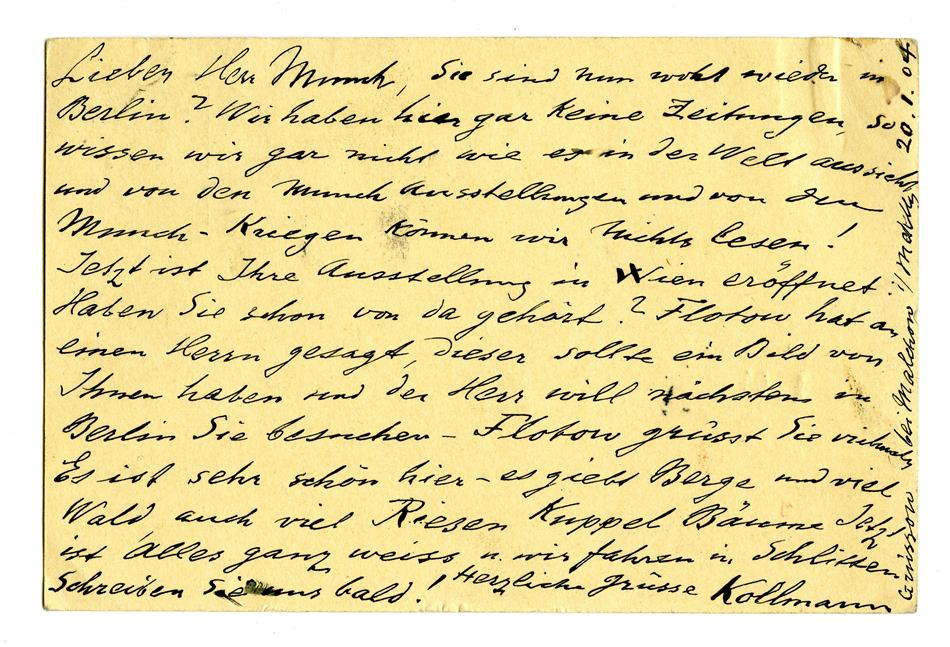 Lieber Herr Munch, Sie sind nun wohl wieder in
Berlin? Wir haben hier gar keine Zeitungen, so
wissen wir gar nicht wie es in der Welt aussieht
und von den Munch Ausstellungen und von den
Munch-Kriegen können wir nichts lesen!
Jetzt ist Ihre Ausstellung in Wien eröffnet
Haben Sie schon von da gehört? Flotow hat an
einen Herrn gesagt, dieser sollte ein Bild von
Ihnen haben und der Herr will nächstens in
Berlin Sie besuchen – Flotow grüsst Sie vielmals
Es ist sehr schön hier – es giebt Berge und viel
Wald, auch viel Riesen Kuppel Bäume Jetzt
ist Alles ganz weiss u. wir fahren in Schlitten
Schreiben Sie uns bald! Herzliche Grüsse Kollmann
Grüssow bei Malchow i/ 20.1.04